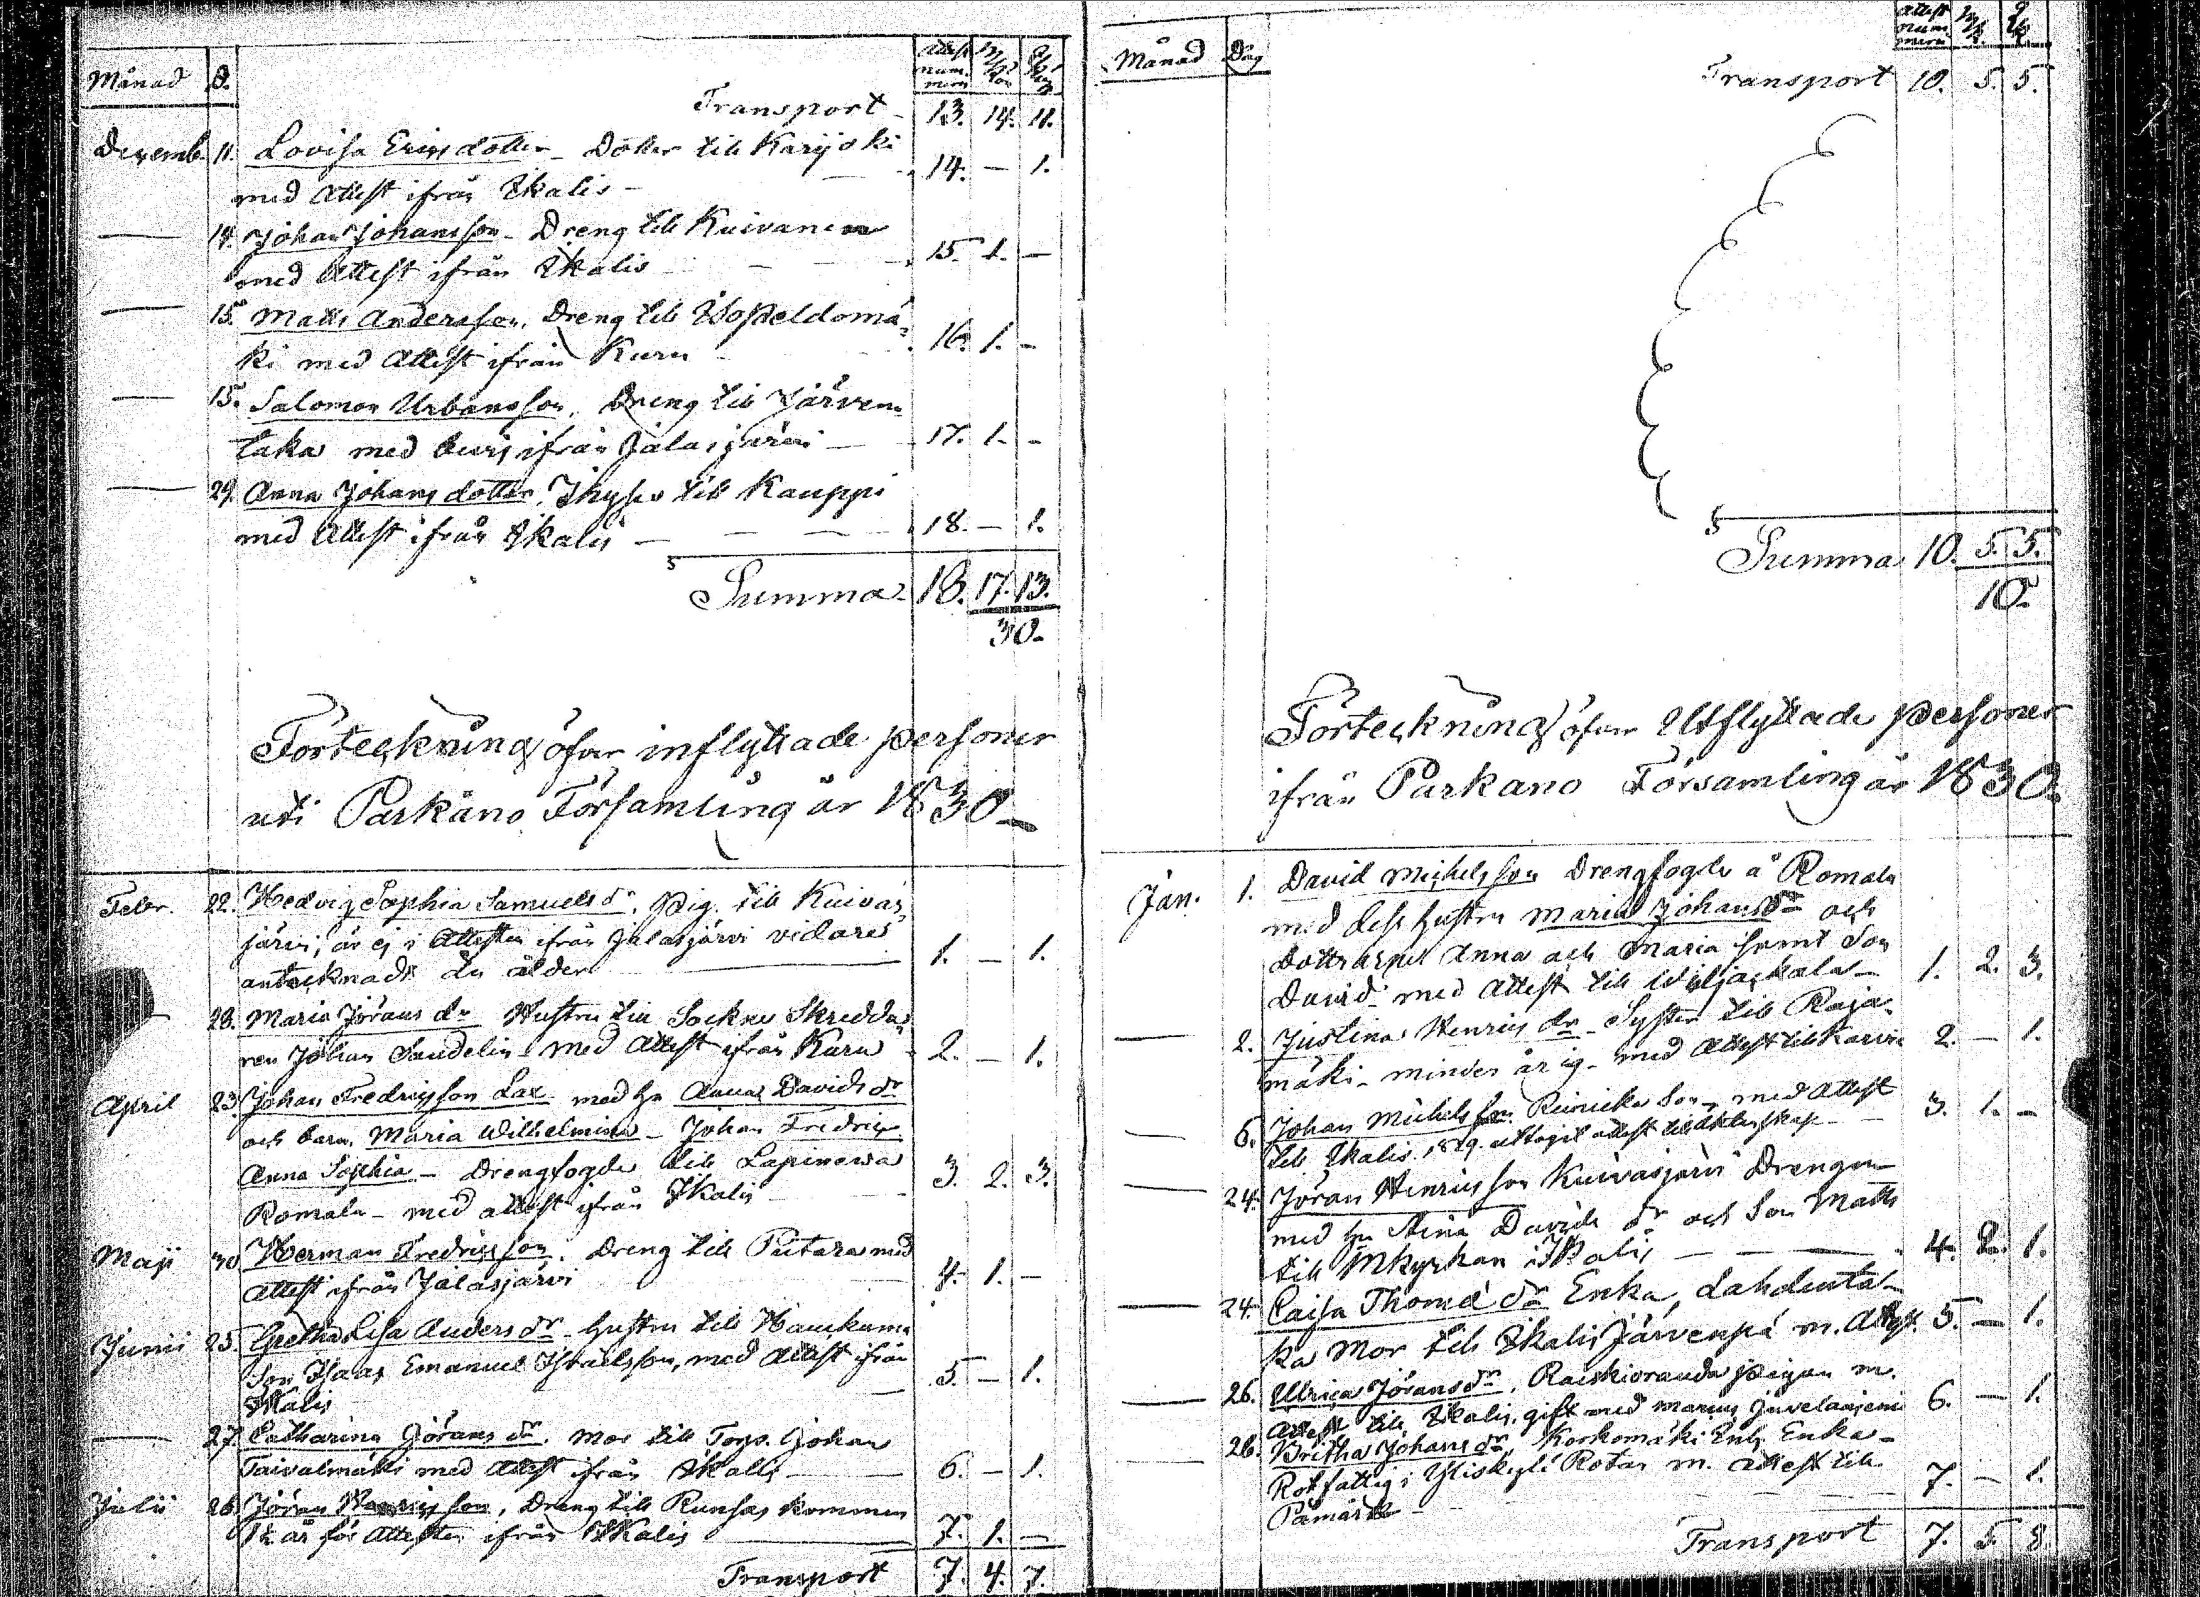 Månad D. Attest nummern M:kön Q:kön
Transport 13. 14. 11.
Decemb. 11. Lovisa Ericsdotter Dotter till Karijoki
med Attest ifrån Ikalis 14. — 1.
— 14. Johan Johansson Dreng till Kuivanen
med Attest ifrån Ikalis 15. 1. —
— 15. Matts Andersson, Dreng till
ki med Attest ifrån Kuru 16. 1. —
— 15. Salomon Urbansson, Dreng till Järven
taka med ifrån Jalasjärvi — 17. 1. —
— 29. Anna Johans dotter, till Kauppi
med Attest ifrån Ikalis — 18. — 1.
Summa 18. 17. 13.
30.
Förteckning öfver inflyttade personer
uti Parkano Församling år 1830
Febr. 22. Hedvig Sophia Samuels dr, pig. till Kuivas
järvi, är ej i Attesten ifrån Jalasjärvi vidare
antecknadt du ålder 1. — 1.
28. Maria Jörans dr Hustru till Sockne Skredda
ren Johan Sandelin med Attest ifrån Kuru 2. — 1.
April 23. Johan Fredricsson Lax med hu Anna Davids dr
och barn, Maria Wilhelmina Johan Fredric
Anna Sophia — Drengfogde till Lapinneva
Romala — med attest ifrån Ikalis 3. 2. 3.
Maji 30 Herman Fredricsson, Dreng till Piitara med
attest ifrån Jalasjärvi 4. 1. —
Junii 25. Gretha Lisa Anders dr Hustru till
Son Isaac Emanuel Israelsson, med Attest ifrån
Ikalis 5. — 1.
— 27. Catharina Görans dr, mor till Torp. Johan
Taivalmäki med Attest ifrån Ikalis — 6. — 1.
Julii 26. Jöran Henricsson, Dreng till Runsas kommen
1½ år för Attesten ifrån Ikalis 7. 1. —
Transport 7. 4. 7.
Månad Dag Attest nummern M:k Q:k
Transport 10. 5. 5.
Summa 10. 5. 5.
10.
Förteckning öfver Utflyttade personer
ifrån Parkano Församling år 1830.
Jan. 1. David Michelsson Drengfogde å Romala
med dess hustru Maria Johans dr och
Döttrarne Anna och Maria samt Son
David med Attest till 1. 2. 3.
— 2. Justina Henrics dr Syster till Raja
mäki — minder årig — med Attest till Karvia 2. — 1.
— 6. Johan Michelsson Reinicka Son, med Attest
till Ikalis. 1829. uttagit attest till äktenskap 3. 1. —
— 24. Jöran Henricsson Kuivasjärvi Drengen
med hu Stina Davids dr och Son Matts
till Mkyrkan i Ikalis — 4. 2. 1.
— 24. Caisa Thomæ dr Enka, Lahdenta
ka Mor till Ikalis Järvenpä m. Attest 5. — 1.
— 26. Ulrica Jörans dr, Raiskioranda pigan m.
Attest till Ikalis, gift med 6. — 1.
— 26. Britha Johans dr, Korkomäki Enka
Rotfattig i Yliskylä Rotan m. attest till
Påmark 7. — 1.
Transport 7. 5. 8.